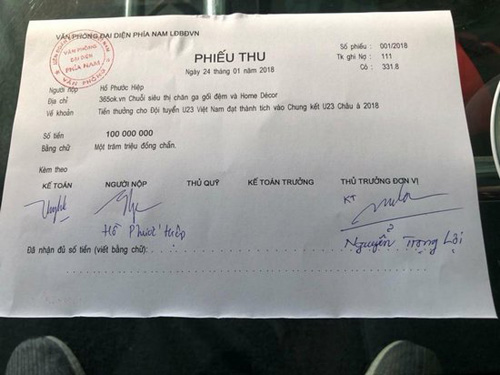 VĂN PHÒNG ĐẠI DIỆN PHÍA NAM LĐBĐVN
VĂN PHÒNG
ĐẠI DIỆN
PHÍA NAM
PHIẾU THU
Ngày 24 tháng 01 năm 2018
Số phiếu : 001/2018
Tk ghi Nợ : 111
Có : 331.8
Người nộp Hồ Phước Hiệp
Địa chỉ 365ok.vn Chuỗi siêu thị chăn ga gối đệm và Home Décor
Về khoản Tiền thưởng cho Đội tuyển U23 Việt Nam đạt thành tích vào Chung kết U23 Châu á 2018
Số tiền 100 000 000
Bằng chữ Một trăm triệu đồng chẵn.
Kèm theo
KẾ TOÁN NGƯỜI NỘP THỦ QUỸ KẾ TOÁN TRƯỞNG THỦ TRƯỞNG ĐƠN VỊ
KT
Hồ Phước Hiệp
Nguyễn Trọng Lợi
Đã nhận đủ số tiền (viết bằng chữ) :